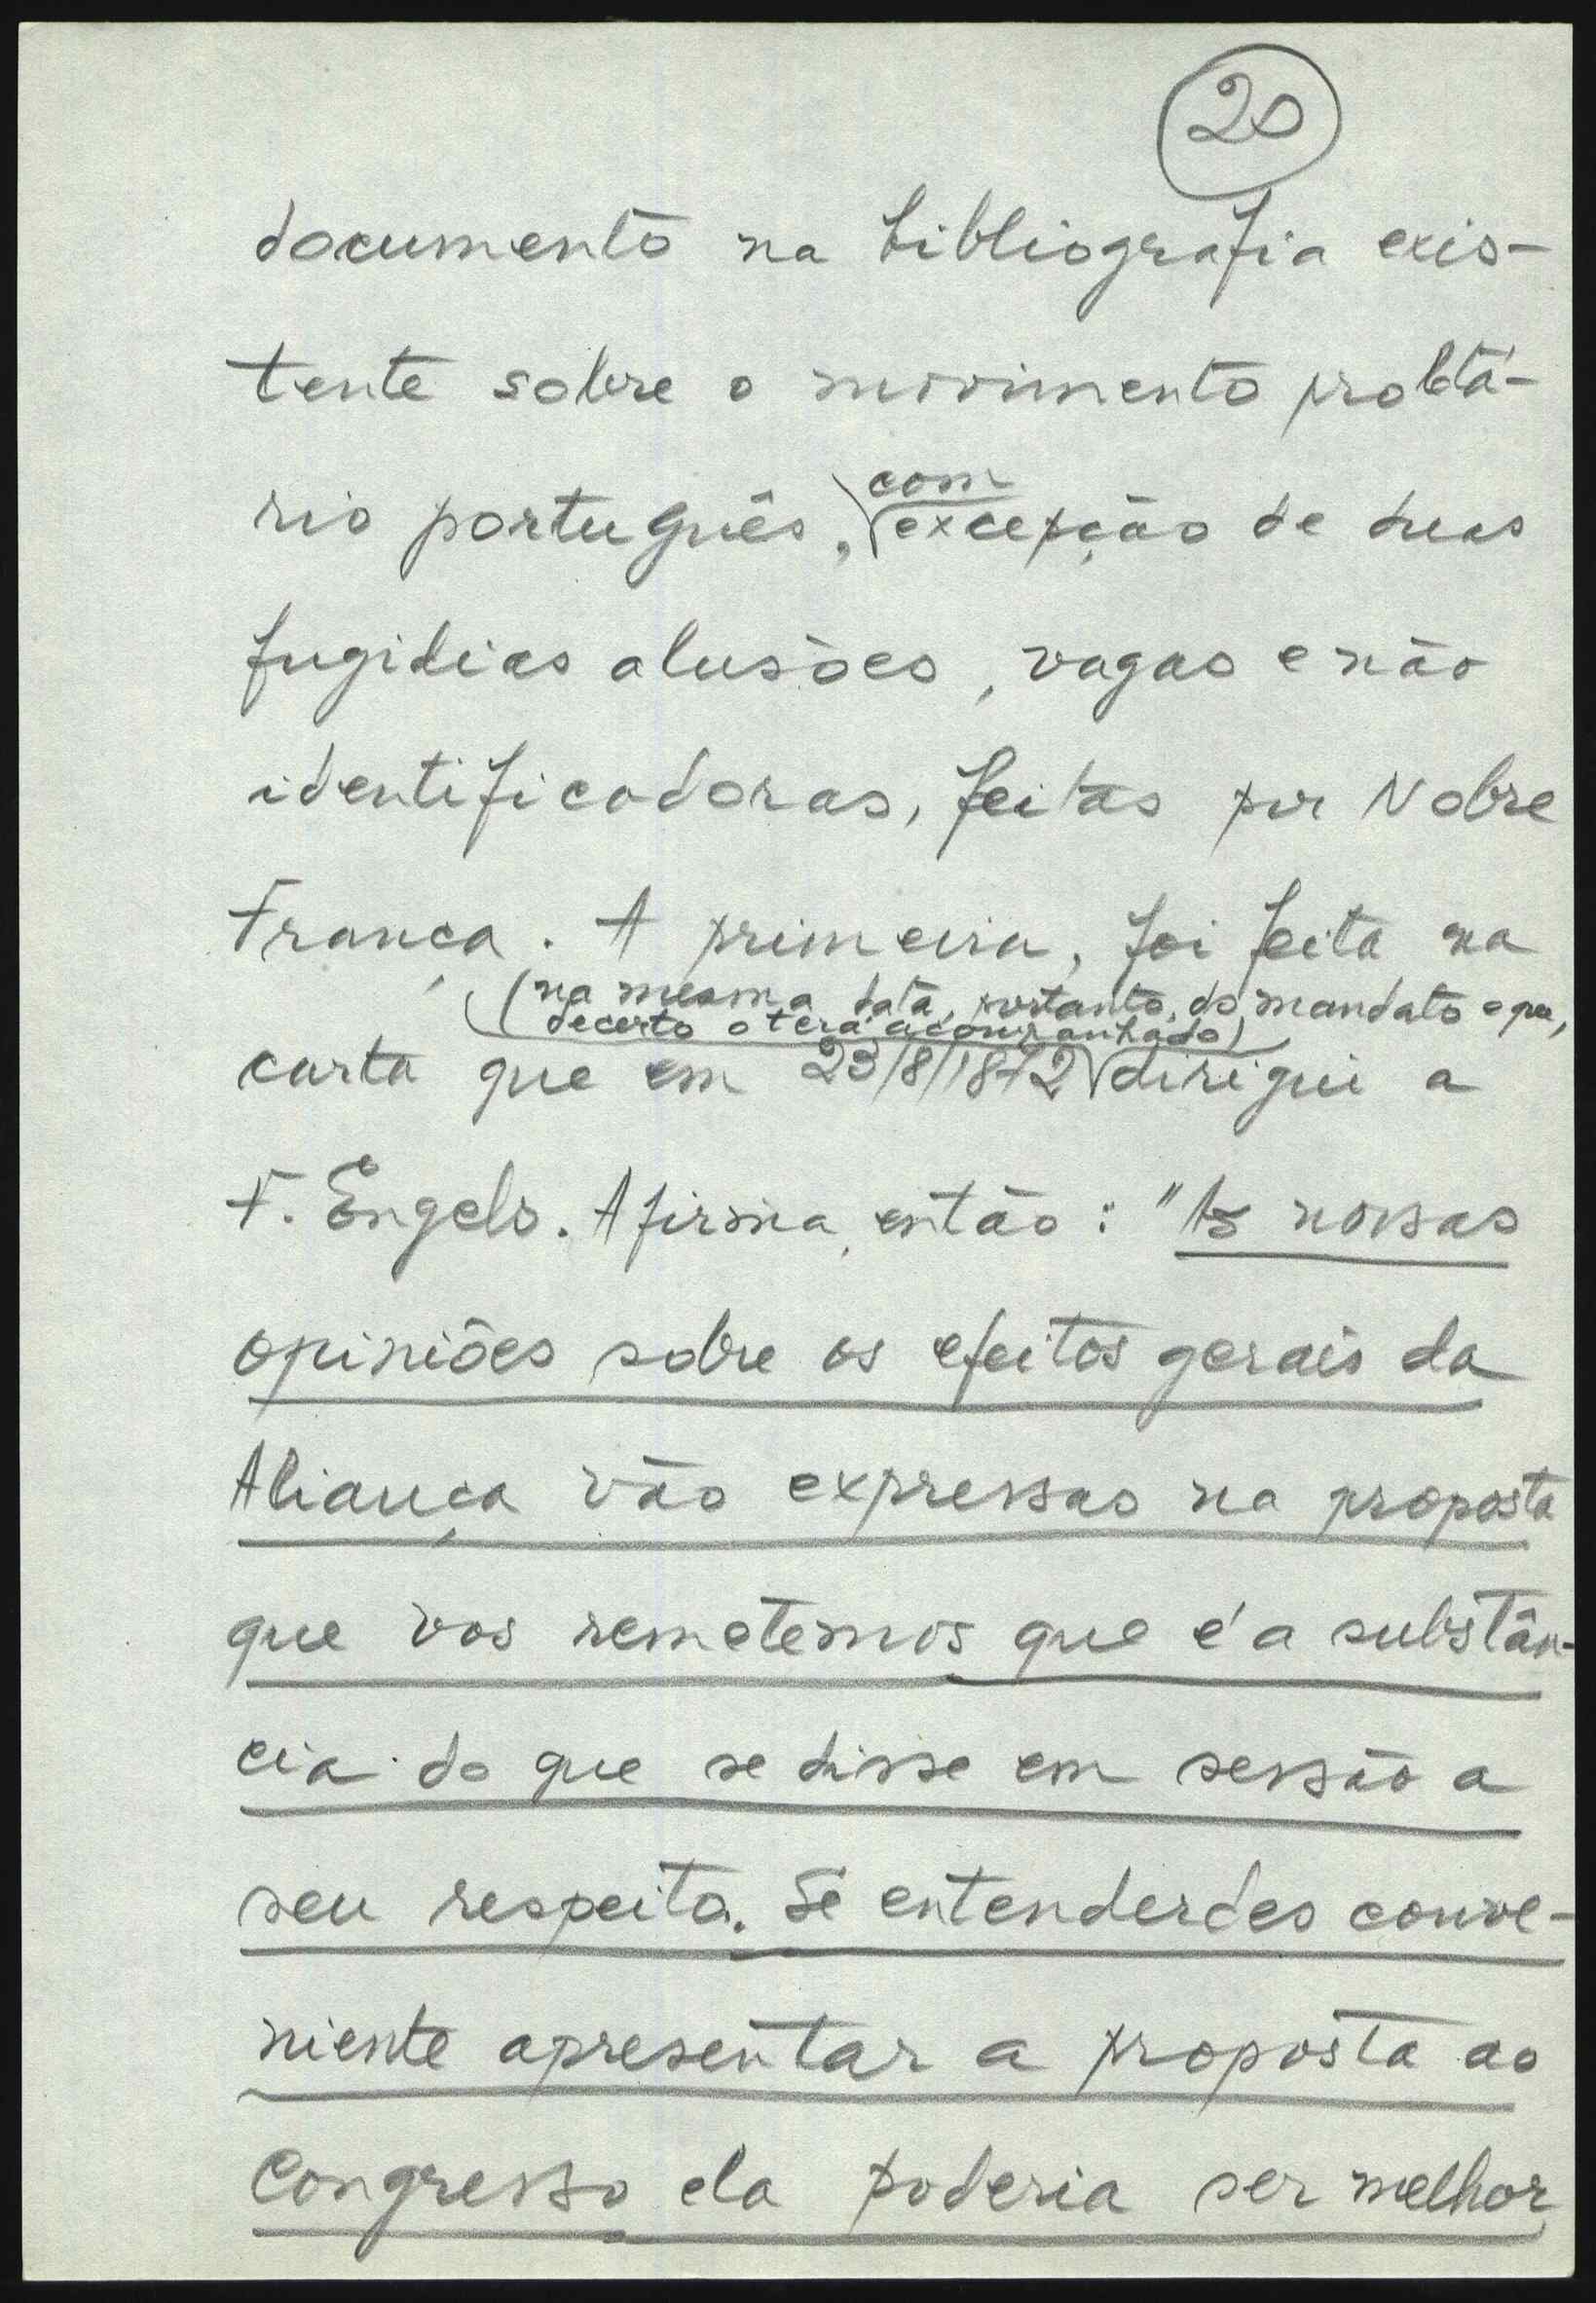 20
documento na bibliografia exis-
tente sobre o movimento proletá-
rio português, com excepção de duas
fugidias alusões, vagas e não
identificadoras, feitas por Nobre
França. A primeira, foi feita na
(na mesma data, portanto, do mandato e que,
decerto o terá acompanhado)
carta que em 23/8/1872 dirigui a
F. Engels. Afirma, então: "As nossas
opiniões sobre os efeitos gerais da
Aliança vão expressas na proposta
que vos remetemos que é a substân-
cia do que se disse em sessão a
seu respeito. Se entenderdes conve-
niente apresentar a proposta ao
Congresso ela poderia ser melhor